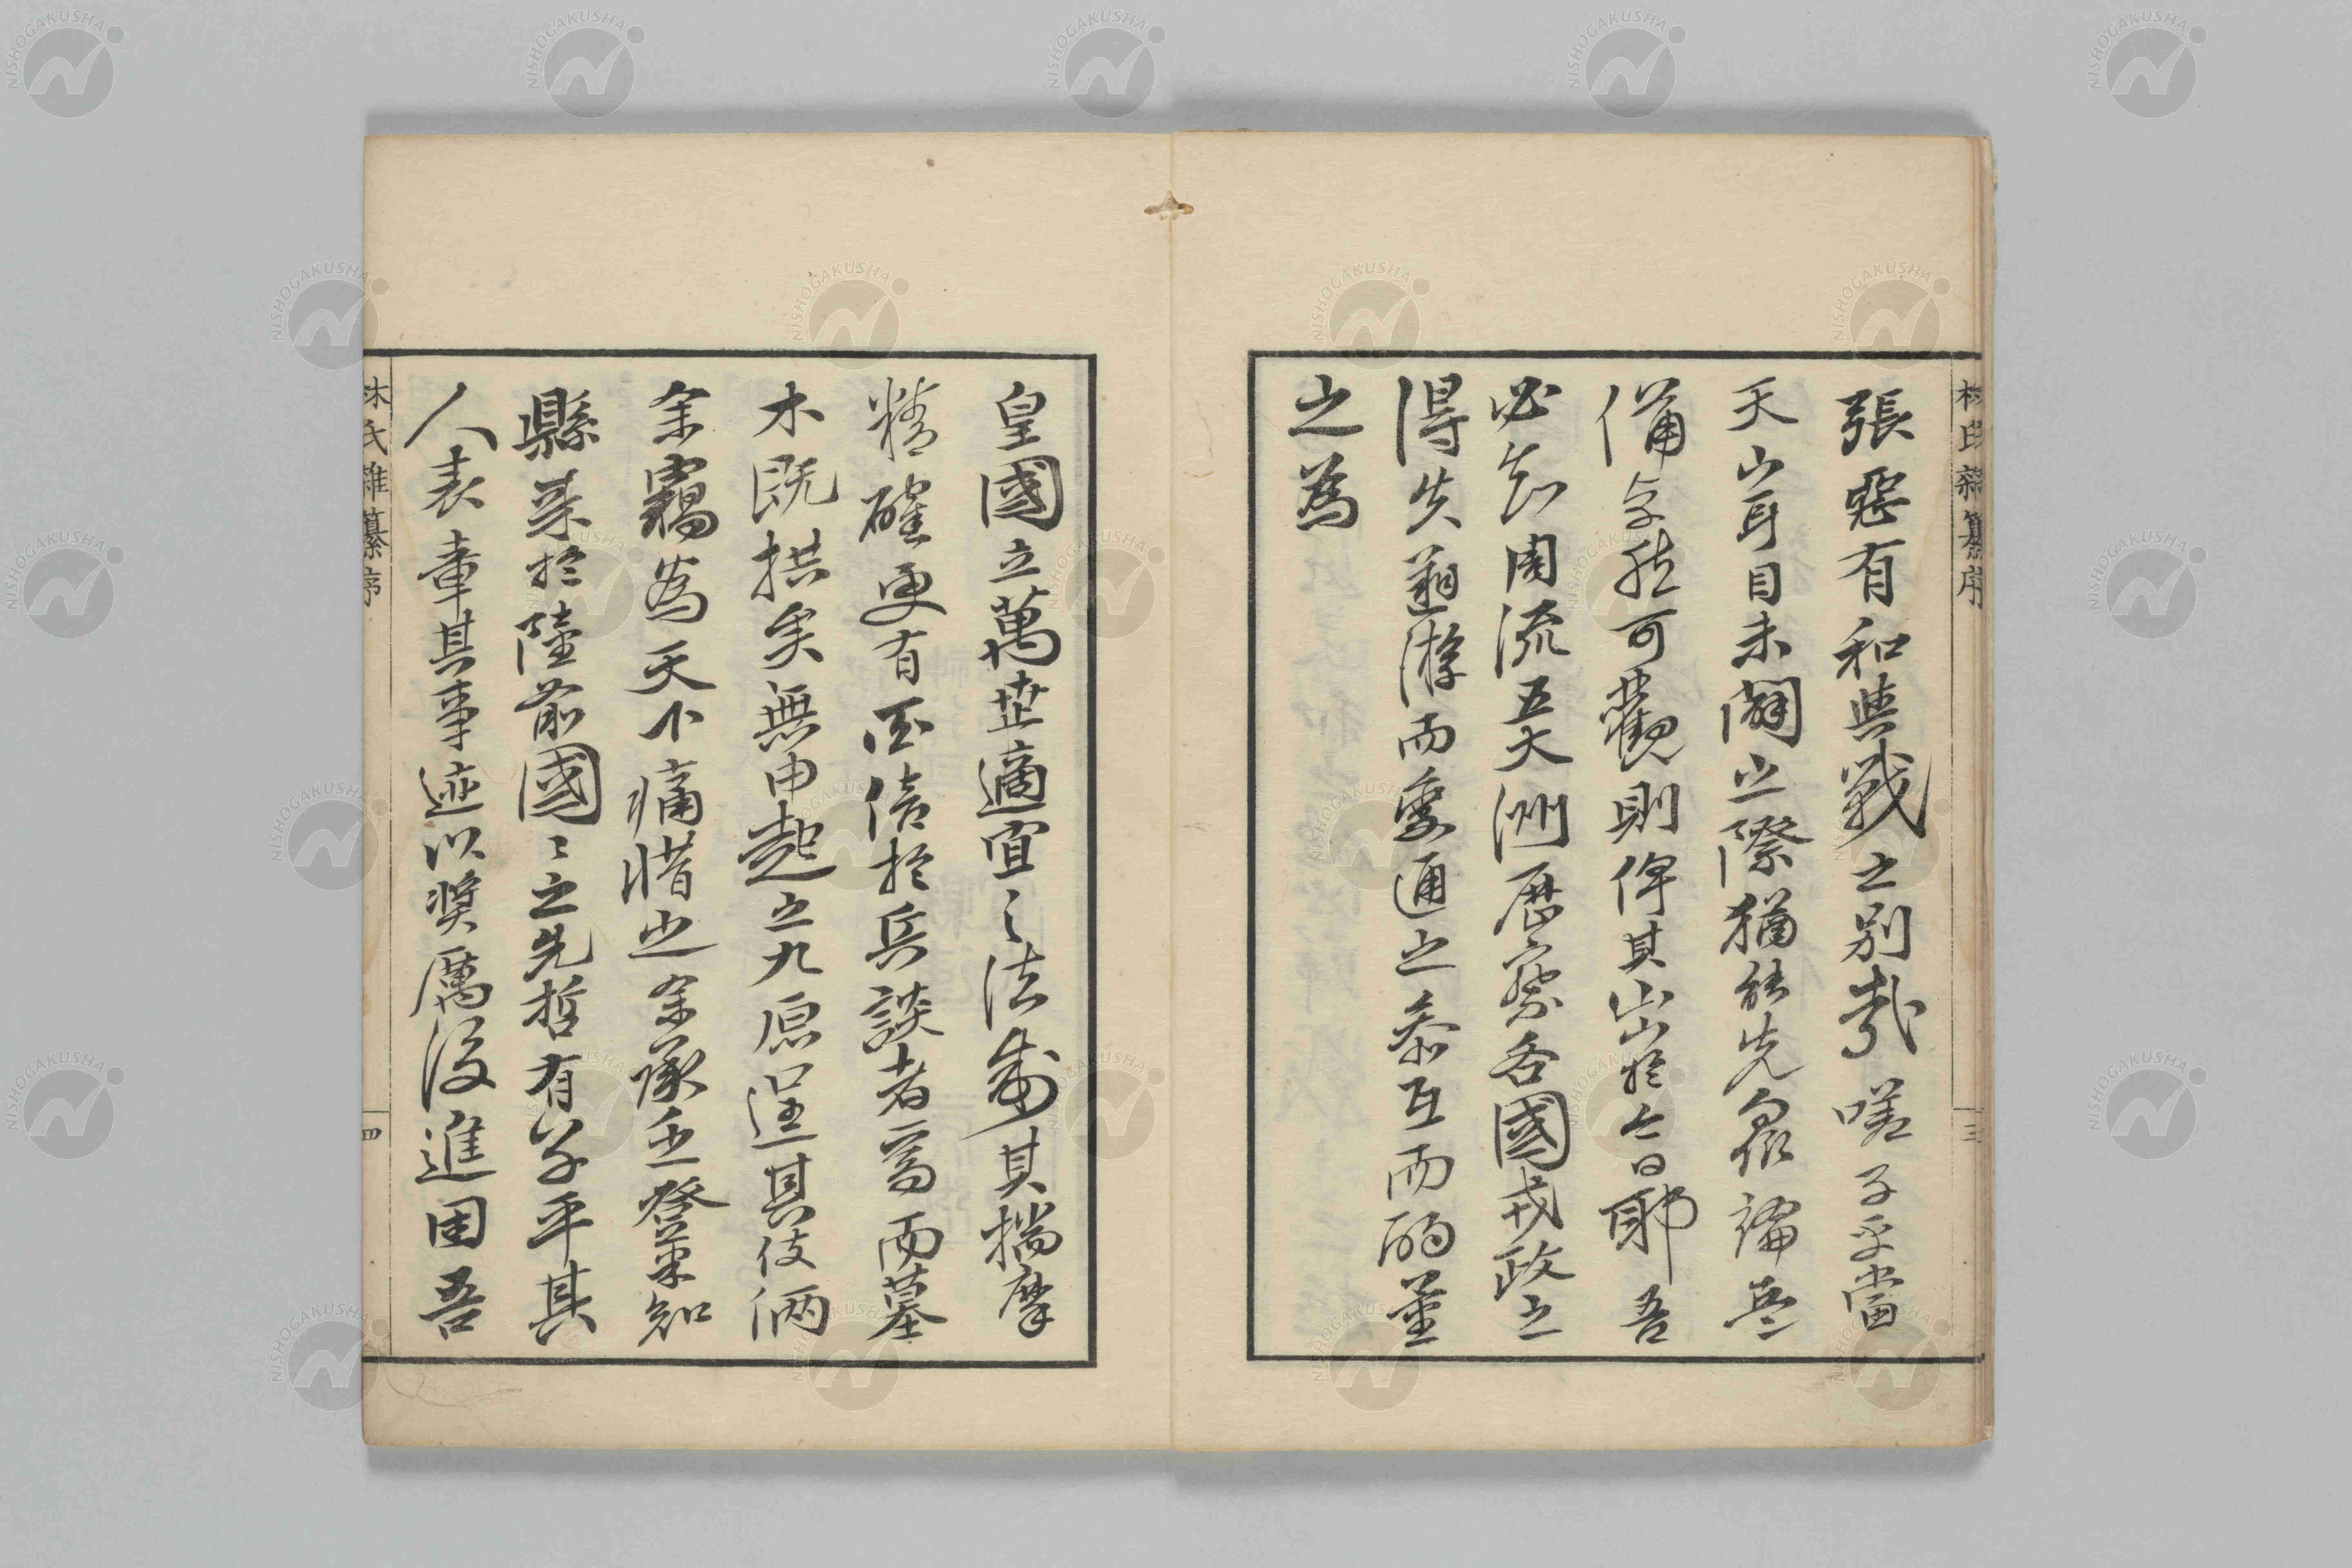 林氏雜纂序
三
張惡有和與戰之別哉嗟子平當
天山耳目未闢之際猶能先衆論兵
備字然可觀則俾其出於今日耶吾
必知周流五大洲歷察各國戎政之
得失邇游而變通之參互而酌量
之為
皇國立萬世適宜之法制其揣摩
精確更有百倍於兵談者焉而墓
木既拱矣無由起之九原逞其伎倆
余竊為天下痛惜也余承乏登米知
縣來於陸前國之先哲有子平其
人表章其事迹以奨厲後進固吾
林氏雜纂序
四
NISHOGAKUSHA